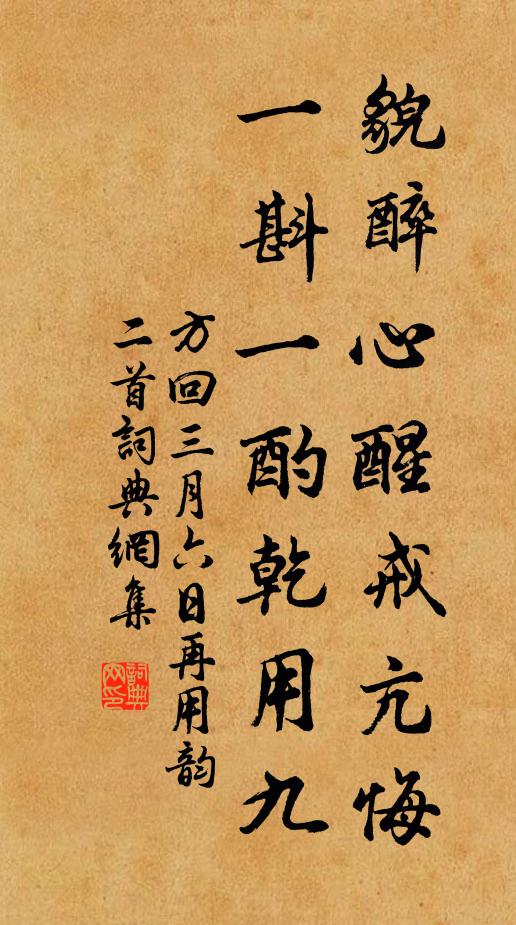 貌醉心醒戒亢悔
一斟一酌乾用九
方回三月六日再用韵
二首詞典網集
詞典网印